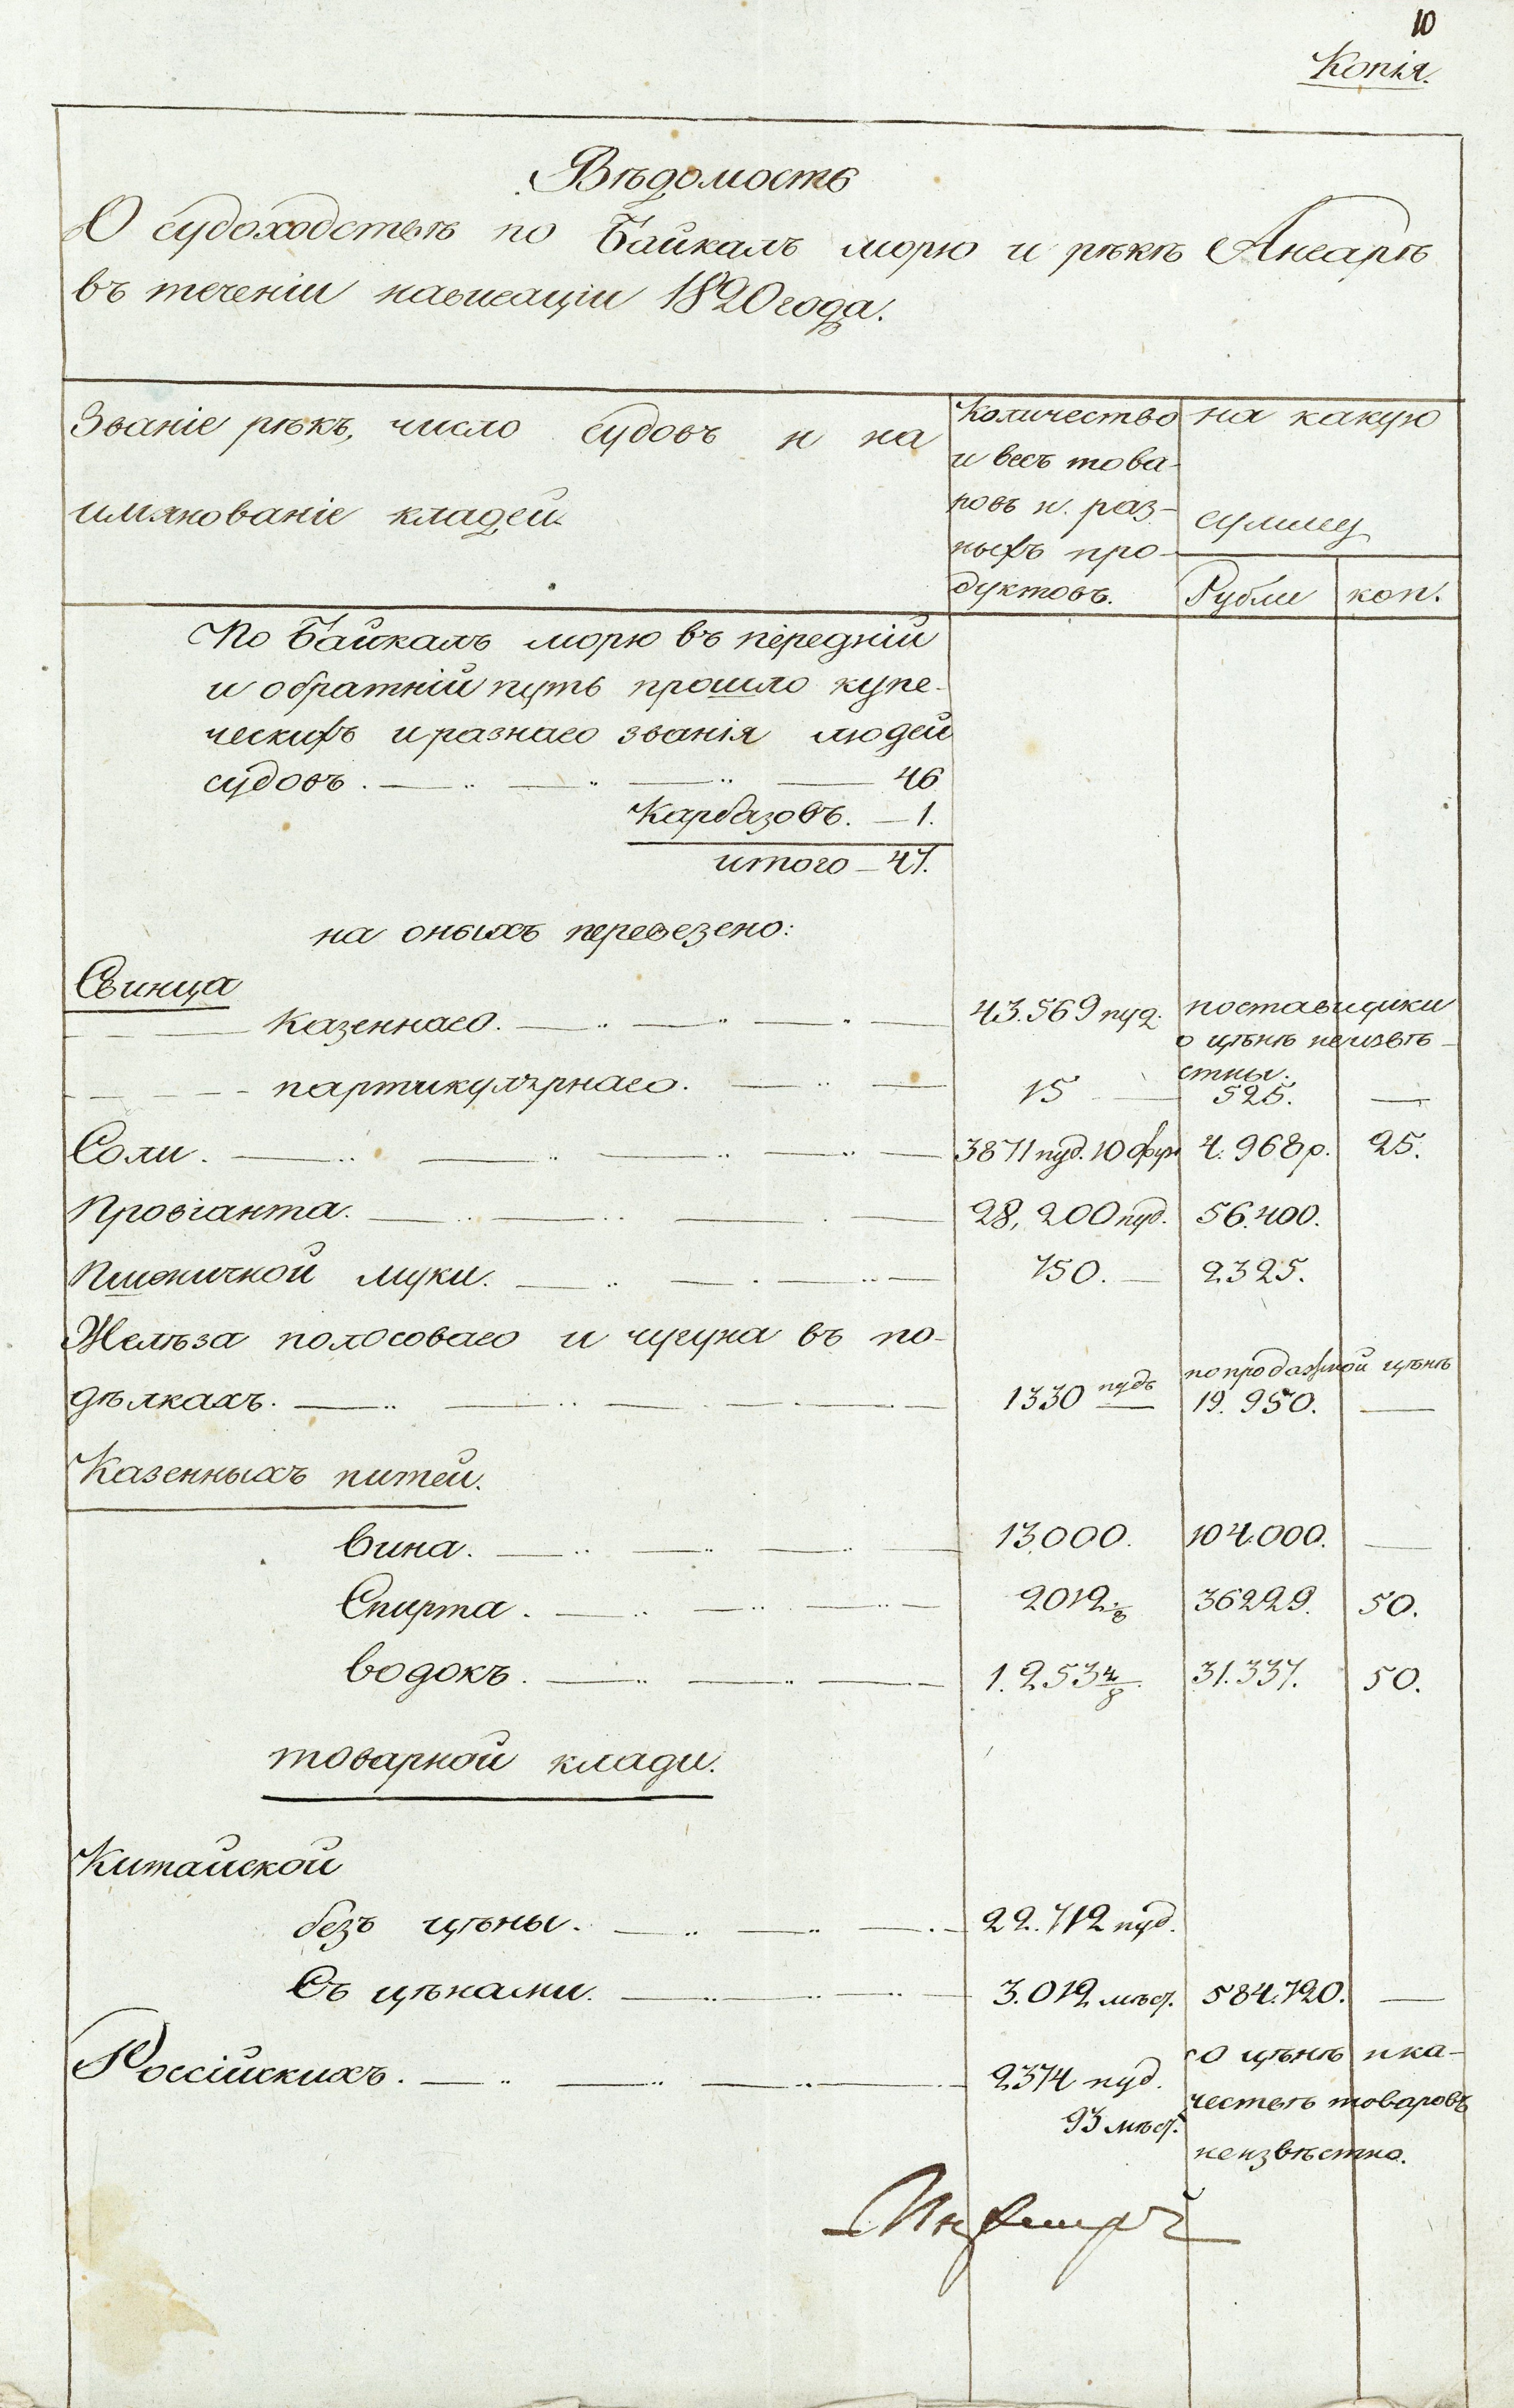 10
Копія.
Вѣдомость
О судоходствѣ по Байкалъ морю и рѣкѣ Ангарѣ
въ теченіи навигаціи 1820 года.
Званіе рѣкъ, число судовъ и на
имянованіе кладей.
Количество
и весъ това-
ровъ и раз-
ныхъ про-
дуктовъ.
на какую
сумму
Рубли коп.
По Байкалъ морю въ передній
и обратній путь прошло купе-
ческихъ и разнаго званія людей
судовъ. 46
Карбазовъ. — 1.
итого — 47.
на оныхъ перевезено:
Свинца
Казеннаго. 43.569 пуд. поставщики
о цѣнѣ неизвѣ-
стны.
партикулярнаго. 15 — 525. —
Соли. 3871 пуд. 10 фун 4.968 р. 25.
Провіанта. 28,200 пуд. 56.400.
Пшеничной муки. 750. — 2325.
Желѣза полосоваго и чугуна въ по-
дѣлкахъ. 1330 пудъ по продажной цѣнѣ
19.950. —
Казенныхъ питей.
Вина. 13.000. 104.000. —
Спирта. 2012 36229. 50.
Водокъ. 1.253 4/8 31.337. 50.
товарной клади.
Китайской
безъ цѣны. 22.712 пуд.
Съ цѣнами. 3.012 мѣст. 584.720. —
Россійскихъ. 2374 пуд.
93 мѣст.
о цѣнѣ и ка-
чествѣ товаровъ
неизвѣстно.